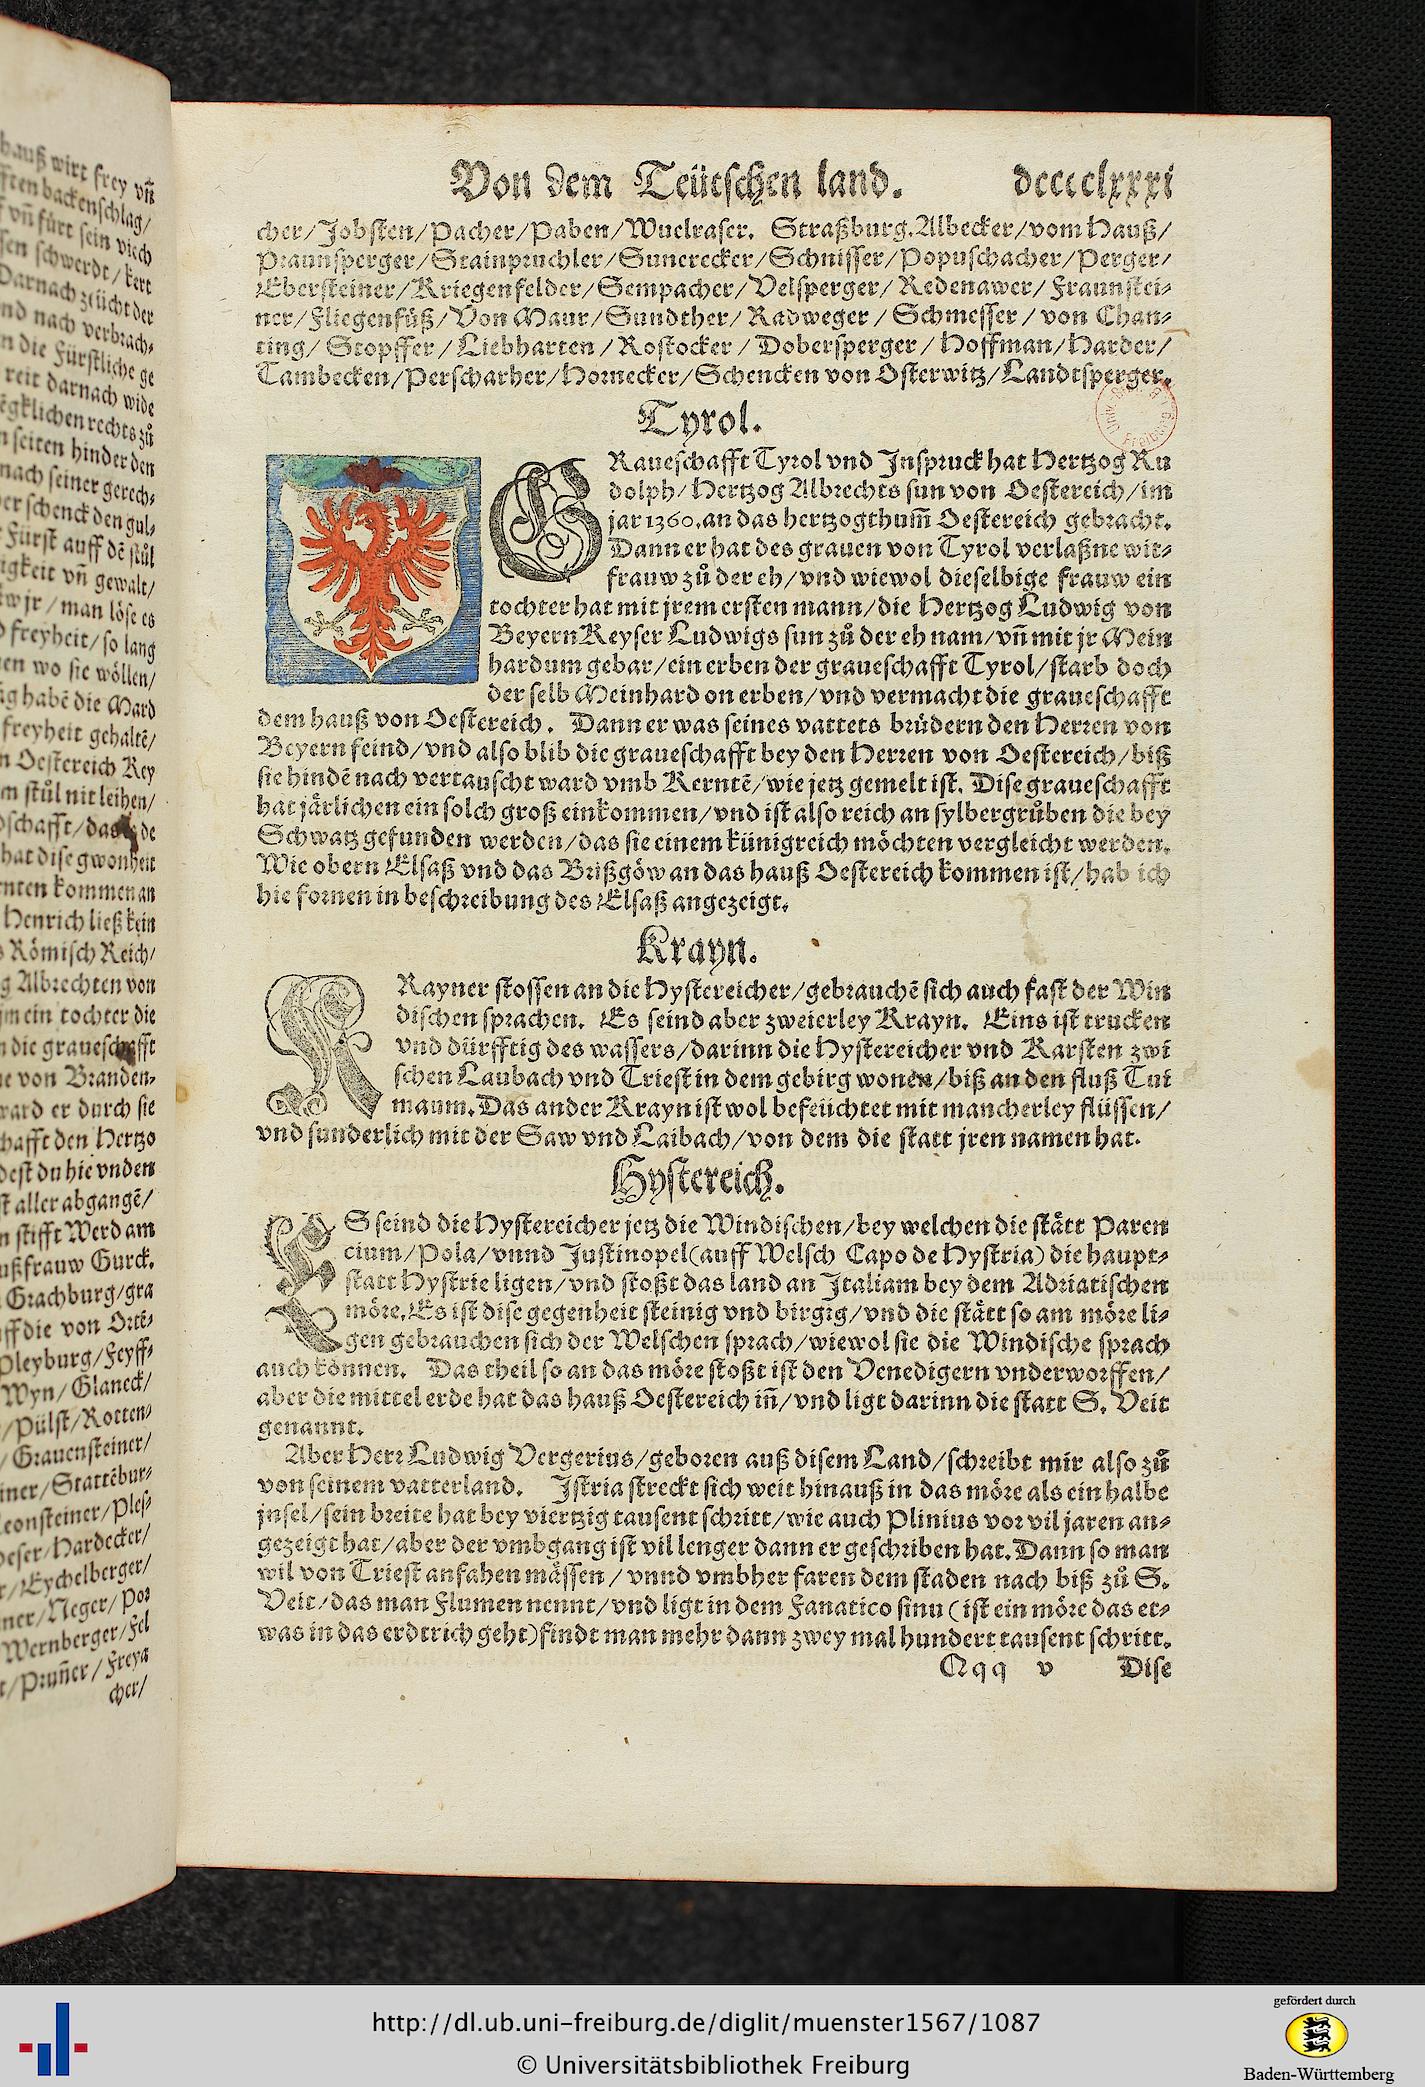 Von dem Teütschen land. dcccclxxxi
cher/Jobsten/Pacher/Paben/Wuelraser. Straßburg. Albecker/vom Hauß/
Praunsperger/Stainpruchler/Sunerecker/Schnisser/Popuschacher/Perger/
Ebersteiner/Kriegenfelder/Sempacher/Velsperger/Redenawer/Fraunstei-
ner/Fliegenfüß/Von Maur/Sundther/Radweger/Schmesser/von Chan-
ting/Stopffer/Liebharten/Rostocker/Dobersperger/Hoffman/Harder/
Tambecken/Perscharher/Hornecker/Schencken von Osterwitz/Landtsperger.
Tyrol.
GRaueschafft Tyrol vnd Jnspruck hat Hertzog Ru
dolph/Hertzog Albrechts sun von Oestereich/im
jar 1360. an das hertzogthum̃ Oestereich gebracht.
Dann er hat des grauen von Tyrol verlaßne wit-
frauw zů der eh/vnd wiewol dieselbige frauw ein
tochter hat mit jrem ersten mann/die Hertzog Ludwig von
Beyern Keyser Ludwigs sun zů der eh nam/vñ mit jr Mein
hardum gebar/ein erben der graueschafft Tyrol/starb doch
der selb Meinhard on erben/vnd vermacht die graueschafft
dem hauß von Oestereich. Dann er was seines vattets brüdern den Herren von
Beyern feind/vnd also blib die graueschafft bey den Herren von Oestereich/biß
sie hindẽ nach vertauscht ward vmb Kerntẽ/wie jetz gemelt ist. Dise graueschafft
hat järlichen ein solch groß einkommen/vnd ist also reich an sylbergrůben die bey
Schwatz gefunden werden/das sie einem künigreich möchten vergleicht werden.
Wie obern Elsaß vnd das Brißgöw an das hauß Oestereich kommen ist/hab ich
hie fornen in beschreibung des Elsaß angezeigt.
Krayn.
KRayner stossen an die Hystereicher/gebrauchẽ sich auch fast der Win
dischen sprachen. Es seind aber zweierley Krayn. Eins ist trucken
vnd dürfftig des wassers/darinn die Hystereicher vnd Karsten zwi
schen Laubach vnd Triest in dem gebirg wonen/biß an den fluß Tui
maum. Das ander Krayn ist wol befeüchtet mit mancherley flüssen/
vnd sunderlich mit der Saw vnd Laibach/von dem die statt jren namen hat.
Hystereich.
ES seind die Hystereicher jetz die Windischen/bey welchen die stätt Paren
cium/Pola/vnnd Justinopel (auff Welsch Capo de Hystria) die haupt-
statt Hystrie ligen/vnd stoßt das land an Jtaliam bey dem Adriatischen
möre. Es ist dise gegenheit steinig vnd birgig/vnd die stätt so am möre li-
gen gebrauchen sich der Welschen sprach/wiewol sie die Windische sprach
auch können. Das theil so an das möre stoßt ist den Venedigern vnderworffen/
aber die mittel erde hat das hauß Oestereich iñ/vnd ligt darinn die statt S. Veit
genannt.
Aber Herr Ludwig Vergerius/geboren auß disem Land/schreibt mir also zů
von seinem vatterland. Jstria streckt sich weit hinauß in das möre als ein halbe
jnsel/sein breite hat bey viertzig tausent schritt/wie auch Plinius vor vil jaren an-
gezeigt hat/aber der vmbgang ist vil lenger dann er geschriben hat. Dann so man
wil von Triest anfahen mässen/vnnd vmbher faren dem staden nach biß zů S.
Veit/das man Flumen nennt/vnd ligt in dem Fanatico sinu (ist ein möre das et-
was in das erdtrich geht) findt man mehr dann zwey mal hundert tausent schritt.
Qqq v Dise
hauß wirt frey vñ
backenschlag/
vñ fürt sein viech
schwerdt/kert
Darnach zeücht der
nd nach verbrach-
n die Fürstliche ge
reit darnach wide
rechts zů
n seiten hinder den
nach seiner gerech-
er schenck den gul-
Fürst auff dẽ stůl
igkeit vñ gewalt/
jr/man löse es
freyheit/so lang
en wo sie wöllen/
habẽ die Mard
freyheit gehaltẽ/
n Oestereich Key
m stůl nit leihen/
dschafft/das de
hat dise gwonheit
rnten kommen an
Henrich ließ kein
s Römisch Reich/
g Albrechten von
jm ein tochter die
n die graueschafft
e von Branden-
ward er durch sie
hafft den Hertzo
dest du hie vnden
st aller abgangẽ/
n stifft Werd am
ußfrauw Gurck.
Grachburg/gra
ff die von Ortẽ-
Pleyburg/Feyff-
Wyn/Glaneck/
/Pülst/Rotten-
/Grauensteiner/
iner/Stattẽbur-
eonsteiner/Ples-
eser/Hardecker/
r/Eychelberger/
ner/Neger/Por
Wernberger/Fel
t/Pruñer/Freya
cher/
Freiburg
http://dl.ub.uni-freiburg.de/diglit/muenster1567/1087
© Universitätsbibliothek Freiburg
gefördert durch
Baden-Württemberg